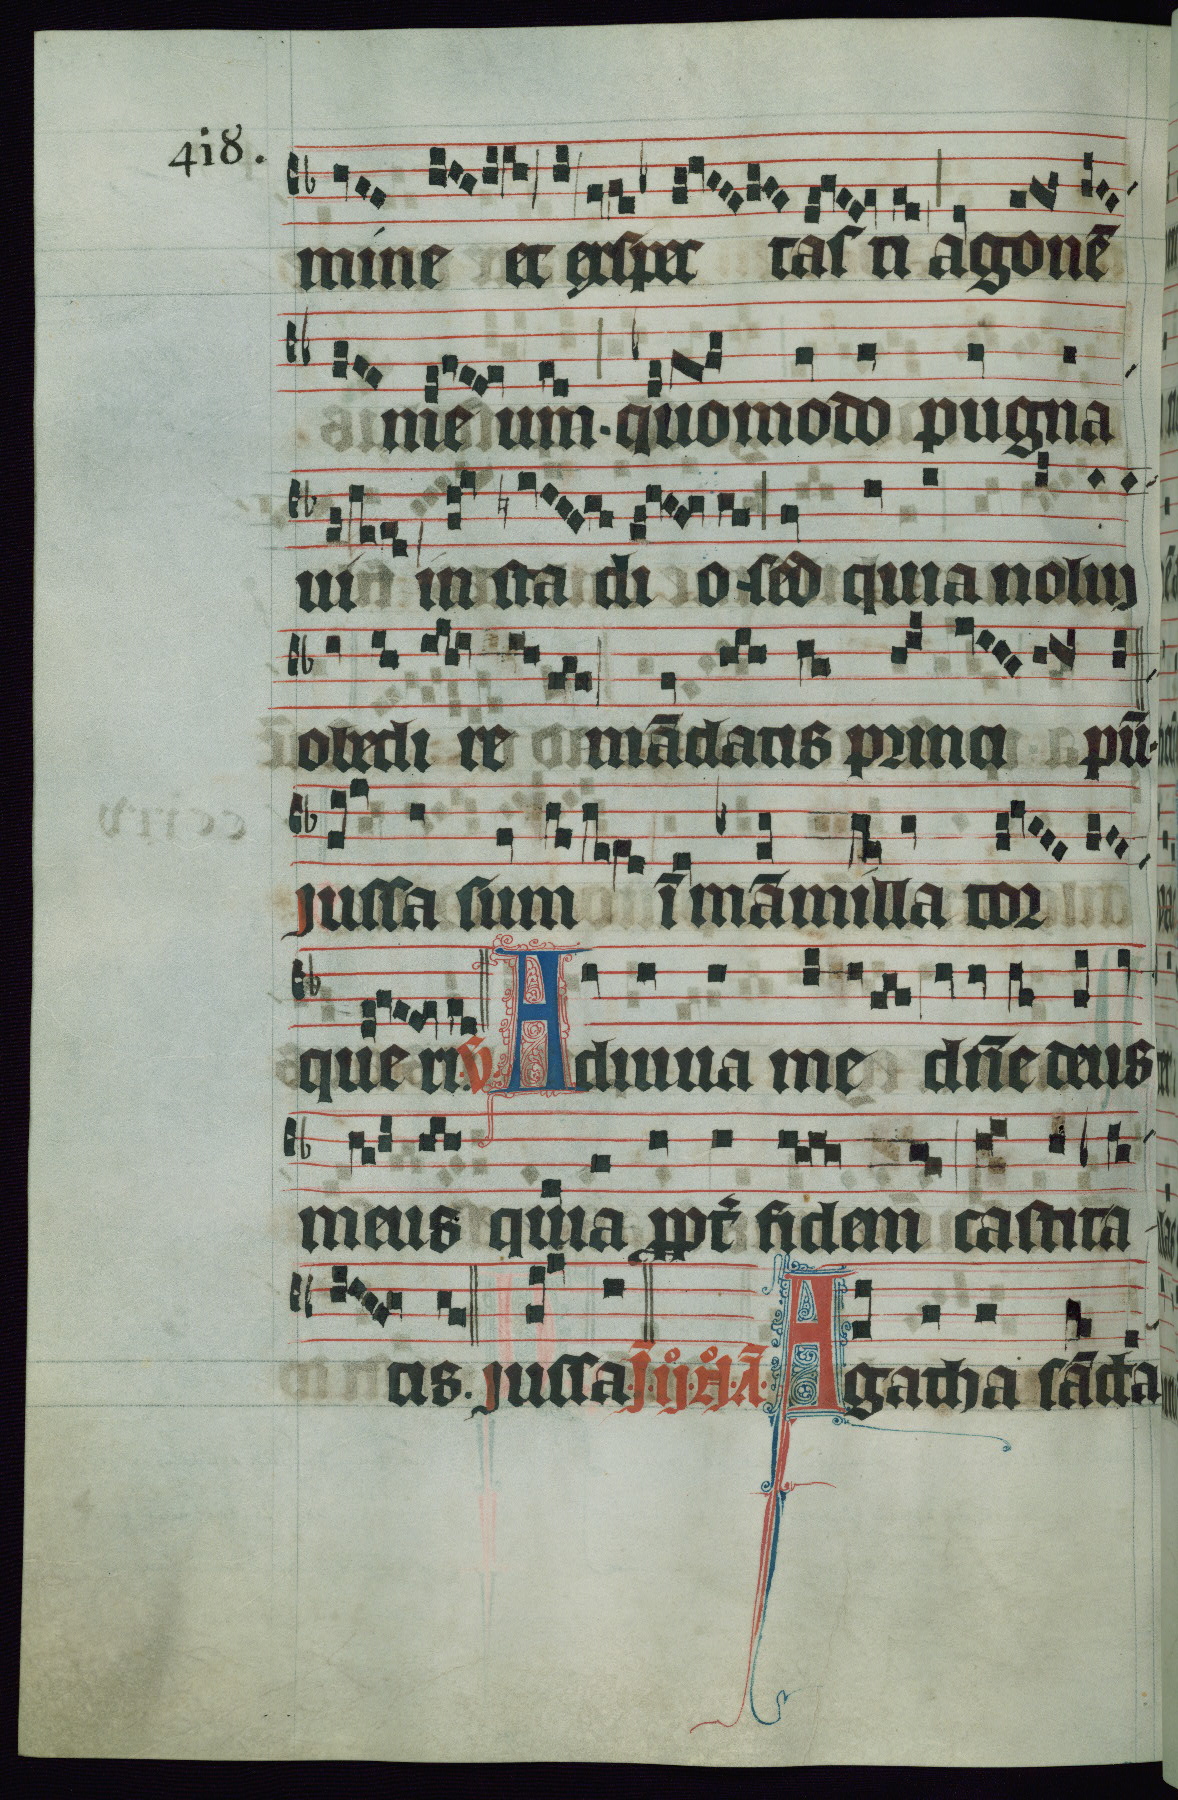 418.
mine et exspec tas ti agonē
me um. quomodo pugna
ui in sta di o. sed quia nolui
obedi re mādatis princi pū.
jussa sum ī mamilla tor
queri. V. Adiuua me dn̄e deus
meus quia ppt̄ fidem castita
tis. jussa Agatha sācta